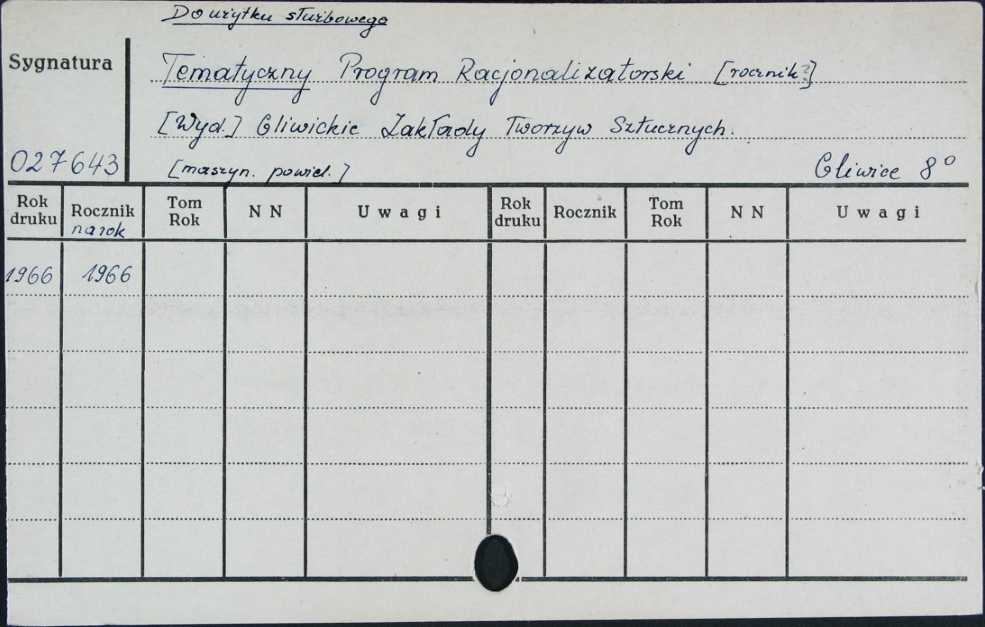 Do użytku służbowego
Sygnatura
Tematyczny Program Racjonalizatorski [rocznik?]
[Wyd.] Gliwickie Zakłady Tworzyw Sztucznych.
027643 [maszyn. powiel.] Gliwice 8°
Rok druku Rocznik na rok Tom Rok N N Uwagi Rok druku Rocznik Tom Rok N N Uwagi
1966 1966